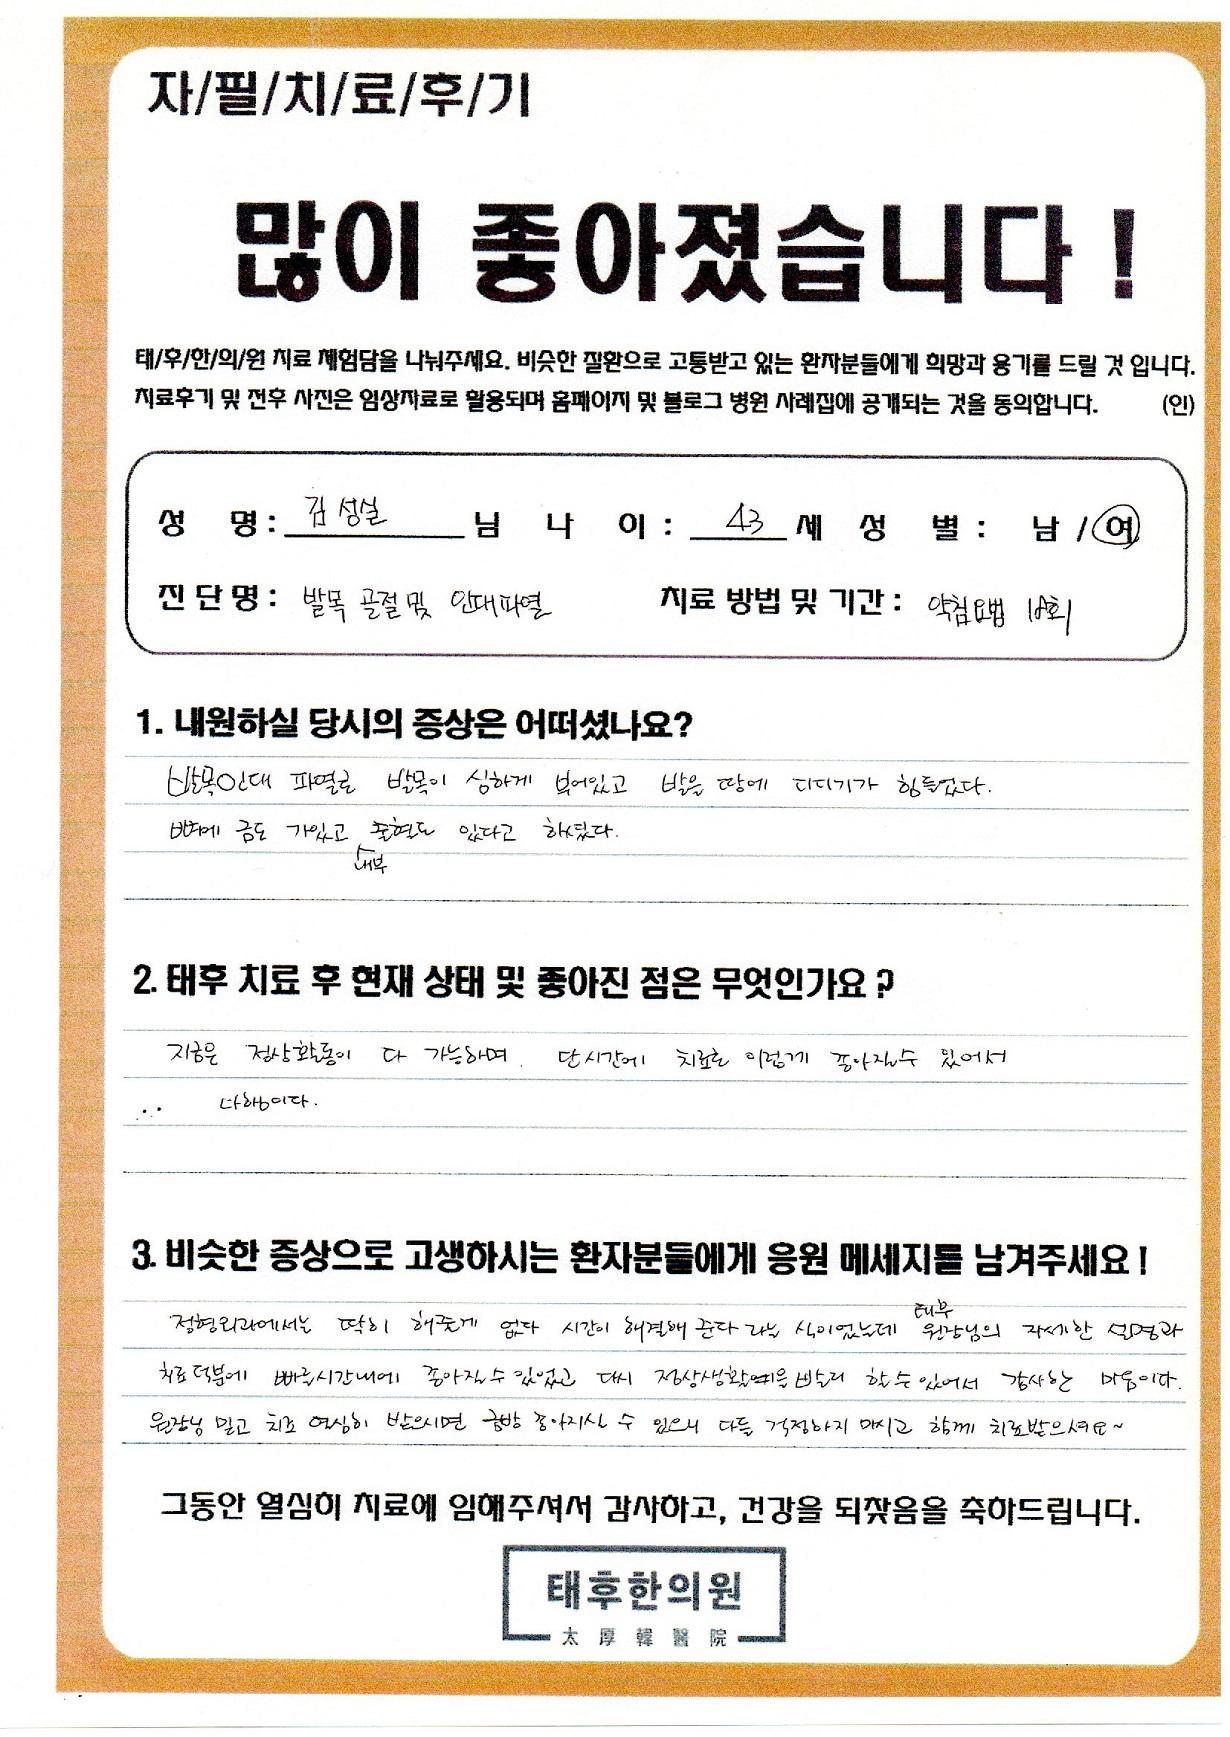 자/필/치/료/후/기
많이 좋아졌습니다!
태/후/한/의/원 치료 체험담을 나눠주세요. 비슷한 질환으로 고통받고 있는 환자분들에게 희망과 용기를 드릴 것 입니다.
치료후기 및 전후 사진은 임상자료로 활용되며 홈페이지 및 블로그 병원 사례집에 공개되는 것을 동의합니다. (인)
성 명: 김성실 님 나 이: 43 세 성 별: 남/여
진단명: 발목 골절 및 인대파열 치료 방법 및 기간: 약침요법 18회
1. 내원하실 당시의 증상은 어떠셨나요?
발목인대 파열로 발목이 심하게 부어있고 발을 땅에 디디기가 힘들었다.
뼈에 금도 가있고 출혈도 있다고 하셨다.
내부
2. 태후 치료 후 현재 상태 및 좋아진 점은 무엇인가요?
지금은 정상활동이 다 가능하며. 단시간에 치료로 이렇게 좋아질수 있어서
다행이다.
3. 비슷한 증상으로 고생하시는 환자분들에게 응원 메세지를 남겨주세요!
태후
정형외과에서는 딱히 해줄게 없다 시간이 해결해 준다 라는 식이었는데 원장님의 자세한 설명과
치료 덕분에 빠른시간내에 좋아질수 있었고 다시 정상생활을 빨리 할수 있어서 감사한 마음이다.
원장님 믿고 치료 열심히 받으시면 금방 좋아지실 수 있으니 다들 걱정하지 마시고 함께 치료받으셔요~
그동안 열심히 치료에 임해주셔서 감사하고, 건강을 되찾음을 축하드립니다.
태후한의원
太厚韓醫院